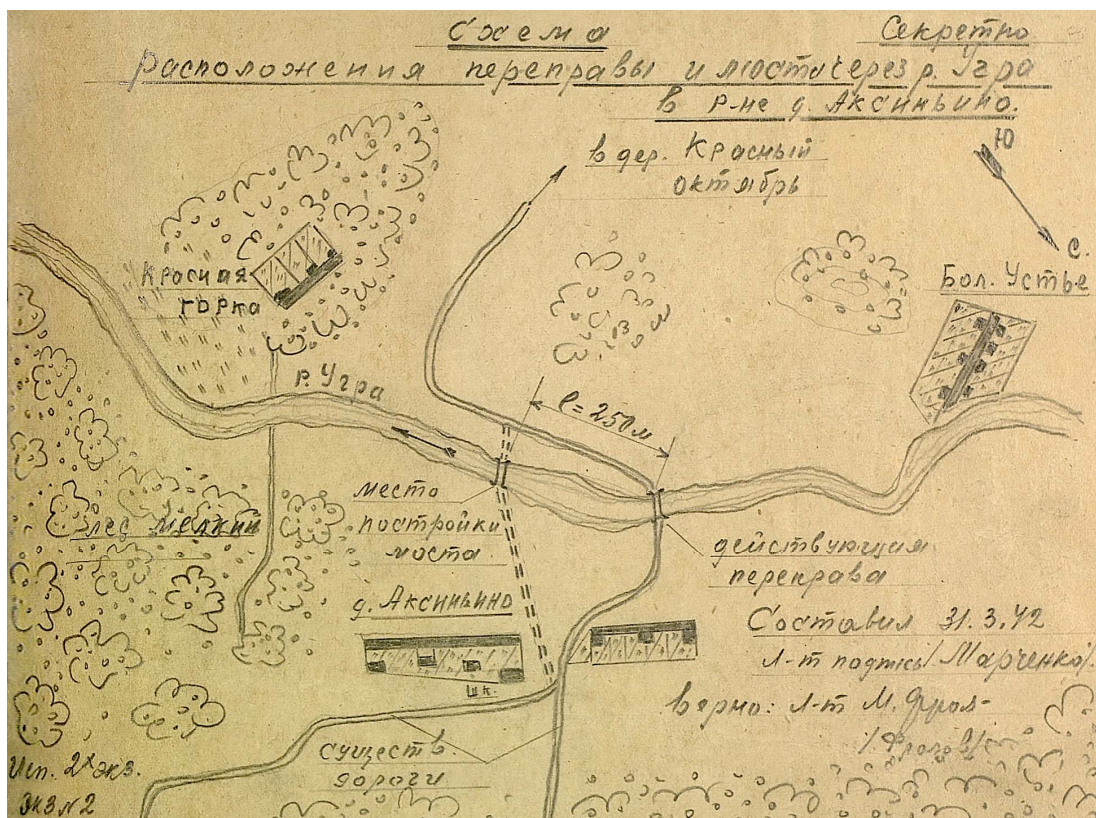 Схема
Секретно
расположения переправы и моста через р. Угра
в р-не д. Аксиньино.
Ю
С.
в дер. Красный
октябрь
Красная
горка
Бол. Устье
р. Угра
l=250м
место
постройки
моста
лес мелкий
действующая
переправа
д. Аксиньино
шк.
Составил 31.3.42
л-т подпись /Марченко/.
верно: л-т М. Фрол-
/Фролов/
существ.
дороги
Исп. 2х экз.
экз №2